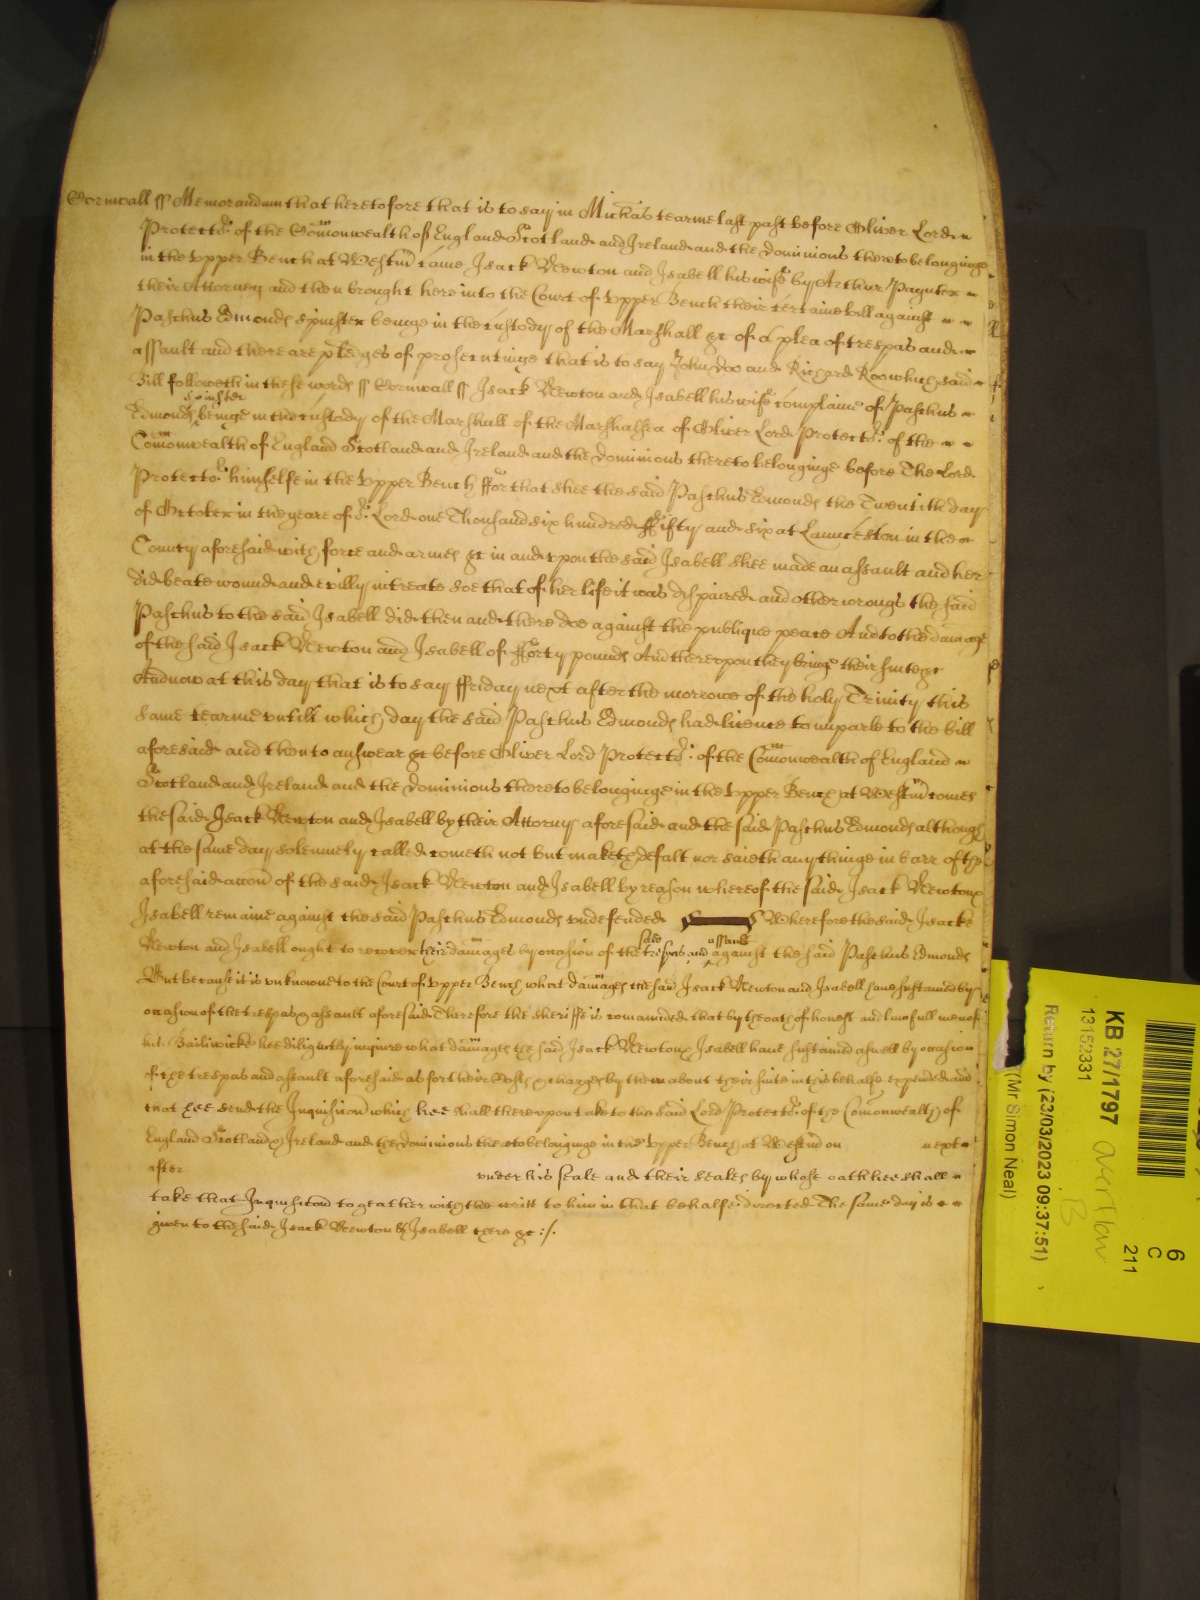 Cornwall ss Memorandum that heretofore that is to say in Michas tearme last past before Oliver Lord
Protector of the Comonwealth of England Scotland and Ireland and the dominions thereto belonginge
in the Upper Bench at Westm came Isack Newton and Isabell his wife by Arthur Paynter
their Attorney and then brought here into the Court of Upper Bench their certaine bill against
Paschus Edmonds spinster beinge in the custody of the Marshall &c of a plea of trespas and
assault and there are pledges of prosecutinge that is to say John Doo and Richard Roo which said
Bill followeth in these words ss Cornwall ss Isack Newton and Isabell his wife complaine of Paschus
Edmonds spinster beinge in the custody of the Marshall of the Marshalsea of Oliver Lord Protector of the
Comonwealth of England Scotland and Ireland and the dominions thereto belonginge before The Lord
Protector himselfe in the Upper Bench ffor that shee the said Paschus Edmonds the Twentith day
of October in the yeare of or Lord one Thousand six hundred ffifty and six at Launceston in the
County aforesaid with force and armes &c in and upon the said Isabell shee made an assault and her
did beate wound and evilly intreate soe that of her life it was dispaired and other wrongs the said
Paschus to the said Isabell did then and there doe against the publique peace And to the damage
of the said Isack Newton and Isabell of fforty pounds And thereupon they bringe their suite &c
And now at this day that is to say ffriday next after the morrowe of the holy Trinity this
same tearme untill which day the said Paschus Edmonds had licence to imparle to the bill
aforesaid and then to answear &c before Oliver Lord Protector of the Comonwealth of England
Scotland and Ireland and the dominions thereto belonginge in the Upper Bench at Westm comes
the said Isack Newton and Isabell by their Attorny aforesaid and the said Paschus Edmonds although
at the same day solemnely called cometh not but maketh defalt nor saieth any thinge in barr of the
aforesaid accon of the said Isack Newton and Isabell by reason whereof the said Isack Newton &
Isabell remaine against the said Paschus Edmonds undefended Wherefore the said Isacke
Newton and Isabell ought to recover their damages by occasion of the said trespas and assault against the said Paschus Edmonds
But because it is unknowne to the Court of Upper Bench what damages the said Isack Newton and Isabell have sustained by
occasion of the trespas & assault aforesaid Therefore the sheriffe is comanded that by the oath of honest and lawfull men of
his Bailiwicke hee diligently inquire what damages the said Isack Newton & Isabell have sustained aswell by occasion
of the trespas and assault aforesaid as for their Costs & charges by them about their suite in this behalfe expended and
that hee send the Inquisicion which hee shall thereupon take to the said Lord Protector of the Comonwealth of
England Scotland & Ireland and the dominions thereto belonginge in the Upper Bench at Westm on next
after under his seale and their seales by whose oath hee shall
take that Inquisition togeather with the writt to him in that behalfe directed The same day is
given to the said Isack Newton & Isabell there &c
6
C
211
KB 27/1797
overflow
B
13152331
Return by (23/03/2023 09:37:51)
(Mr Simon Neal)